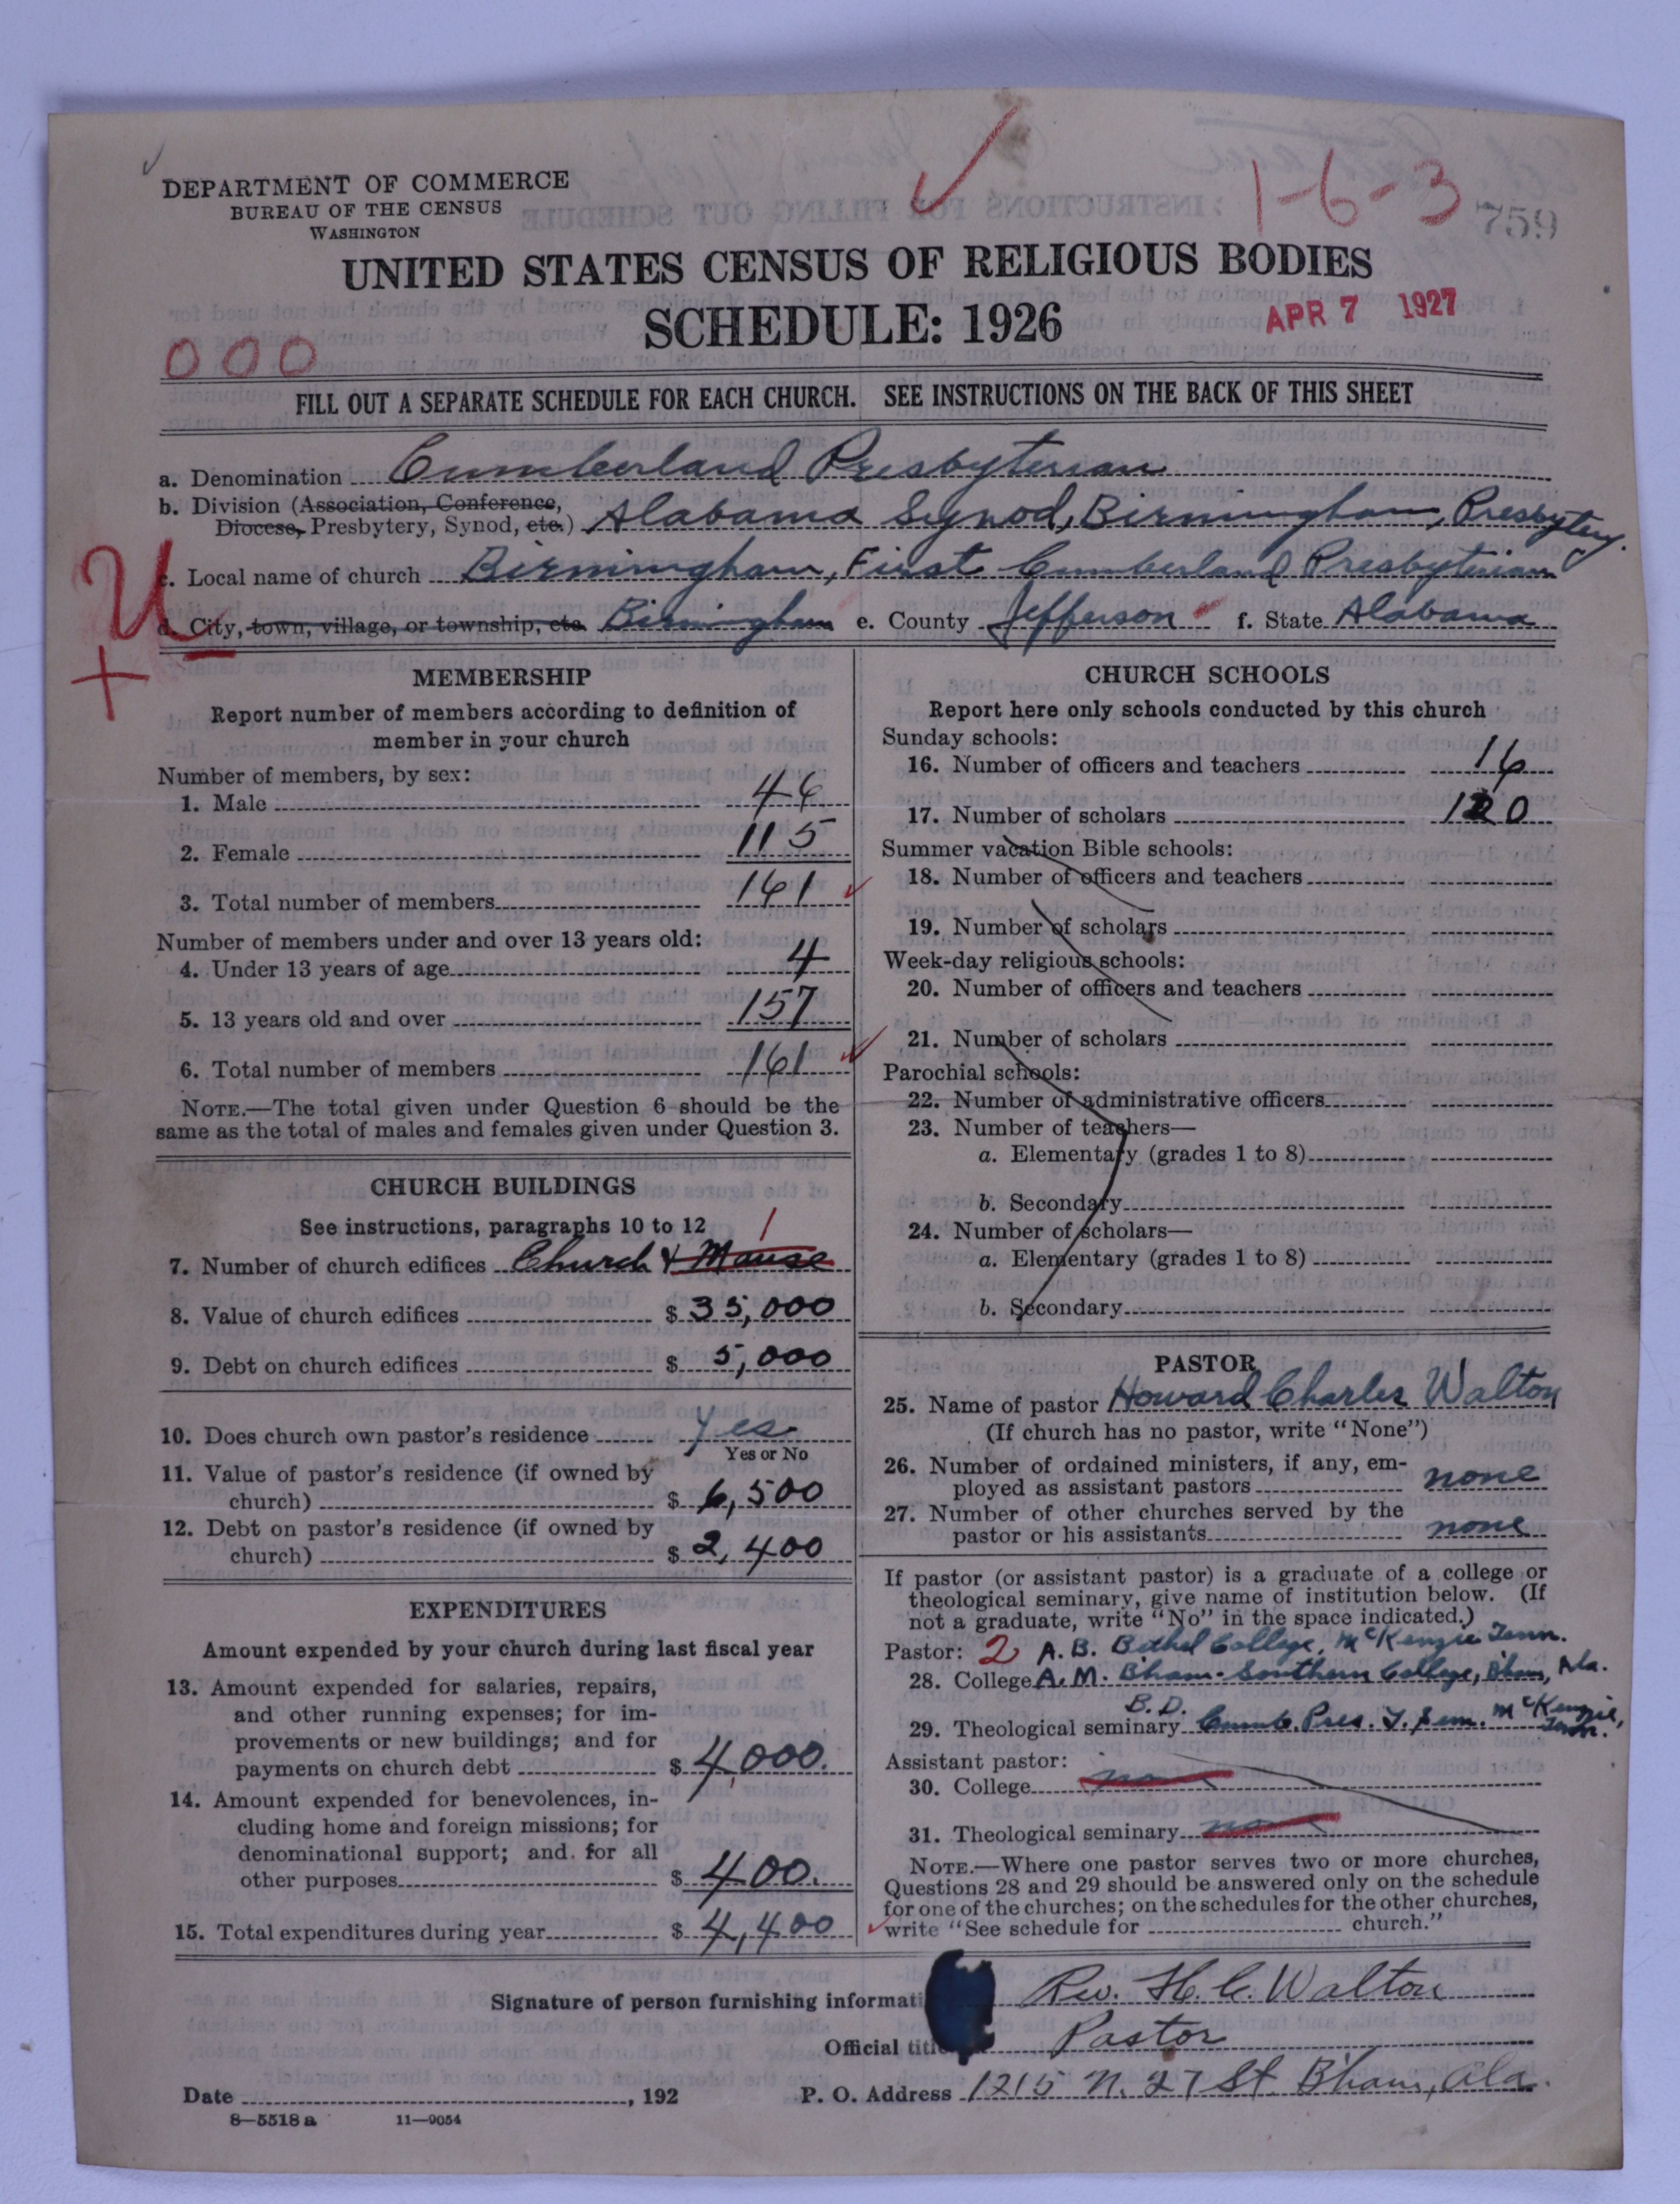 DEPARTMENT OF COMMERCE
BUREAU OF THE CENSUS
WASHINGTON
1-6-3
759
UNITED STATES CENSUS OF RELIGIOUS BODIES
SCHEDULE: 1926
APR 7 1927
000
FILL OUT A SEPARATE SCHEDULE FOR EACH CHURCH. SEE INSTRUCTIONS ON THE BACK OF THIS SHEET
a. Denomination Cumberland Presbyterian
b. Division (Association, Conference,
Diocese, Presbytery, Synod, etc.) Alabama Synod, Birmingham, Presbytery.
U
c. Local name of church Birmingham, First Cumberland Presbyterian
d. City, town, village, or township, etc. Birmingham e. County Jefferson f. State Alabama
+
MEMBERSHIP
Report number of members according to definition of
member in your church
Number of members, by sex:
1. Male 46
2. Female 115
3. Total number of members 161
Number of members under and over 13 years old:
4. Under 13 years of age 4
5. 13 years old and over 157
6. Total number of members 161
NOTE.—The total given under Question 6 should be the
same as the total of males and females given under Question 3.
CHURCH BUILDINGS
See instructions, paragraphs 10 to 12 1
7. Number of church edifices Church & Manse
8. Value of church edifices $ 35,000
9. Debt on church edifices $ 5,000
10. Does church own pastor's residence Yes
Yes or No
11. Value of pastor's residence (if owned by
church) $ 6,500
12. Debt on pastor's residence (if owned by
church) $ 2,400
EXPENDITURES
Amount expended by your church during last fiscal year
13. Amount expended for salaries, repairs,
and other running expenses; for im-
provements or new buildings; and for
payments on church debt $ 4,000.
14. Amount expended for benevolences, in-
cluding home and foreign missions; for
denominational support; and for all
other purposes $ 400.
15. Total expenditures during year $ 4,400
CHURCH SCHOOLS
Report here only schools conducted by this church
Sunday schools:
16. Number of officers and teachers 16
17. Number of scholars 120
Summer vacation Bible schools:
18. Number of officers and teachers
19. Number of scholars
Week-day religious schools:
20. Number of officers and teachers
21. Number of scholars
Parochial schools:
22. Number of administrative officers
23. Number of teachers—
a. Elementary (grades 1 to 8)
b. Secondary
24. Number of scholars—
a. Elementary (grades 1 to 8)
b. Secondary
PASTOR
25. Name of pastor Howard Charles Walton
(If church has no pastor, write "None")
26. Number of ordained ministers, if any, em-
ployed as assistant pastors none
27. Number of other churches served by the
pastor or his assistants none
If pastor (or assistant pastor) is a graduate of a college or
theological seminary, give name of institution below. (If
not a graduate, write "No" in the space indicated.)
Pastor: 2 A.B. Bethel College, McKenzie Tenn.
28. College A.M. B'ham-Southern College, B'ham, Ala.
B.D.
29. Theological seminary Cumb. Pres. T. Sem. McKenzie, Tenn.
Assistant pastor:
30. College none
31. Theological seminary none
NOTE.—Where one pastor serves two or more churches,
Questions 28 and 29 should be answered only on the schedule
for one of the churches; on the schedules for the other churches,
write "See schedule for church."
Signature of person furnishing informati Rev. H. C. Walton
Official title Pastor
Date , 192 P. O. Address 1215 N. 27 St. B'ham, Ala.
8—5518 a 11—9054